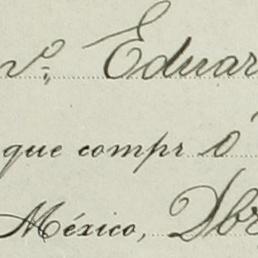 Vo. Eduar
que compr ó
México, Dbr